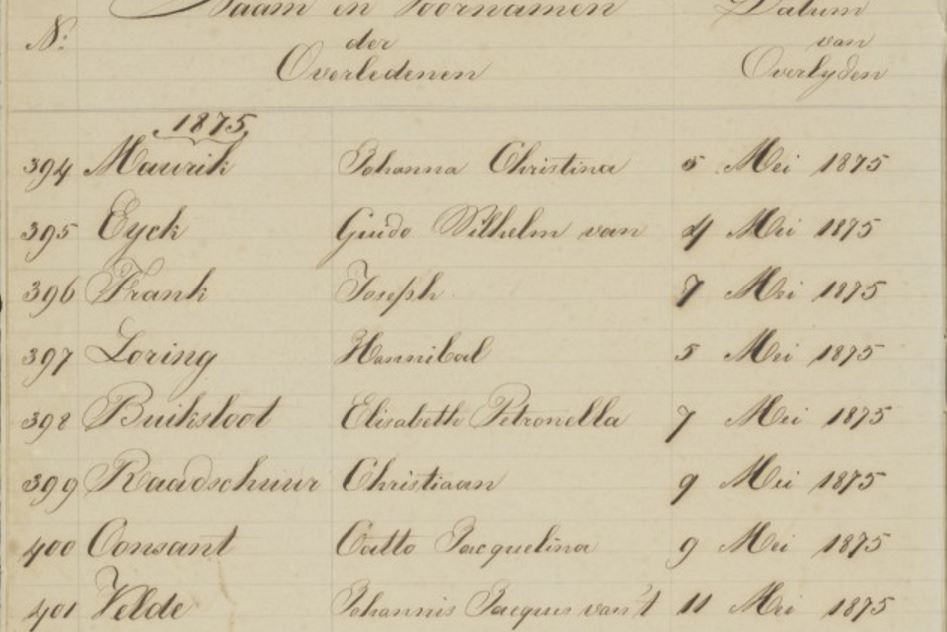 Naam en Voornamen Datum
No. der van
Overledenen Overlyden
1875
394 Maurik Johanna Christina 5 Mei 1875
395 Eyck Guido Wilhelm van 4 Mei 1875
396 Frank Joseph 7 Mei 1875
397 Loring Hannibal 5 Mei 1875
398 Buiksloot Elisabeth Petronella 7 Mei 1875
399 Raadschuur Christiaan 9 Mei 1875
400 Consant Jacquelina 9 Mei 1875
401 Velde Johannis Jacques van't 11 Mei 1875